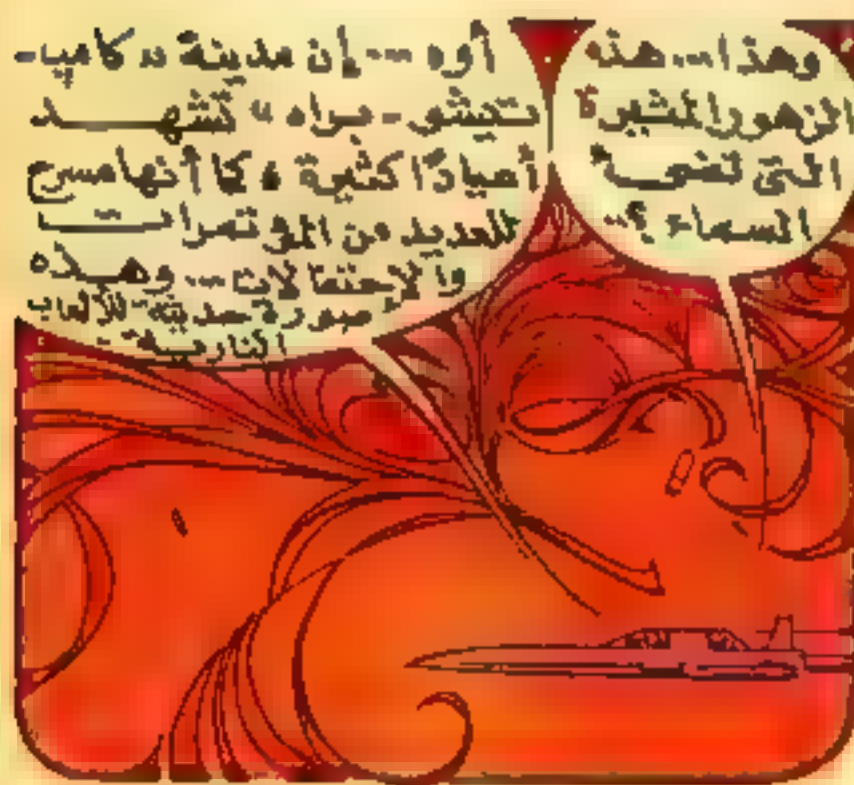 وهذا... هذه
الزهور المثيرة
التى تضىء
السماء ؟..
أوه --- إن مدينة « كامپا-
تيشو - براه » تشهد
أعيادًا كثيرة ، كما أنها مسرح
للعديد من المؤتمرات
والاحتفالات --- وهذه
صورة حديثة للألعاب
النارية --